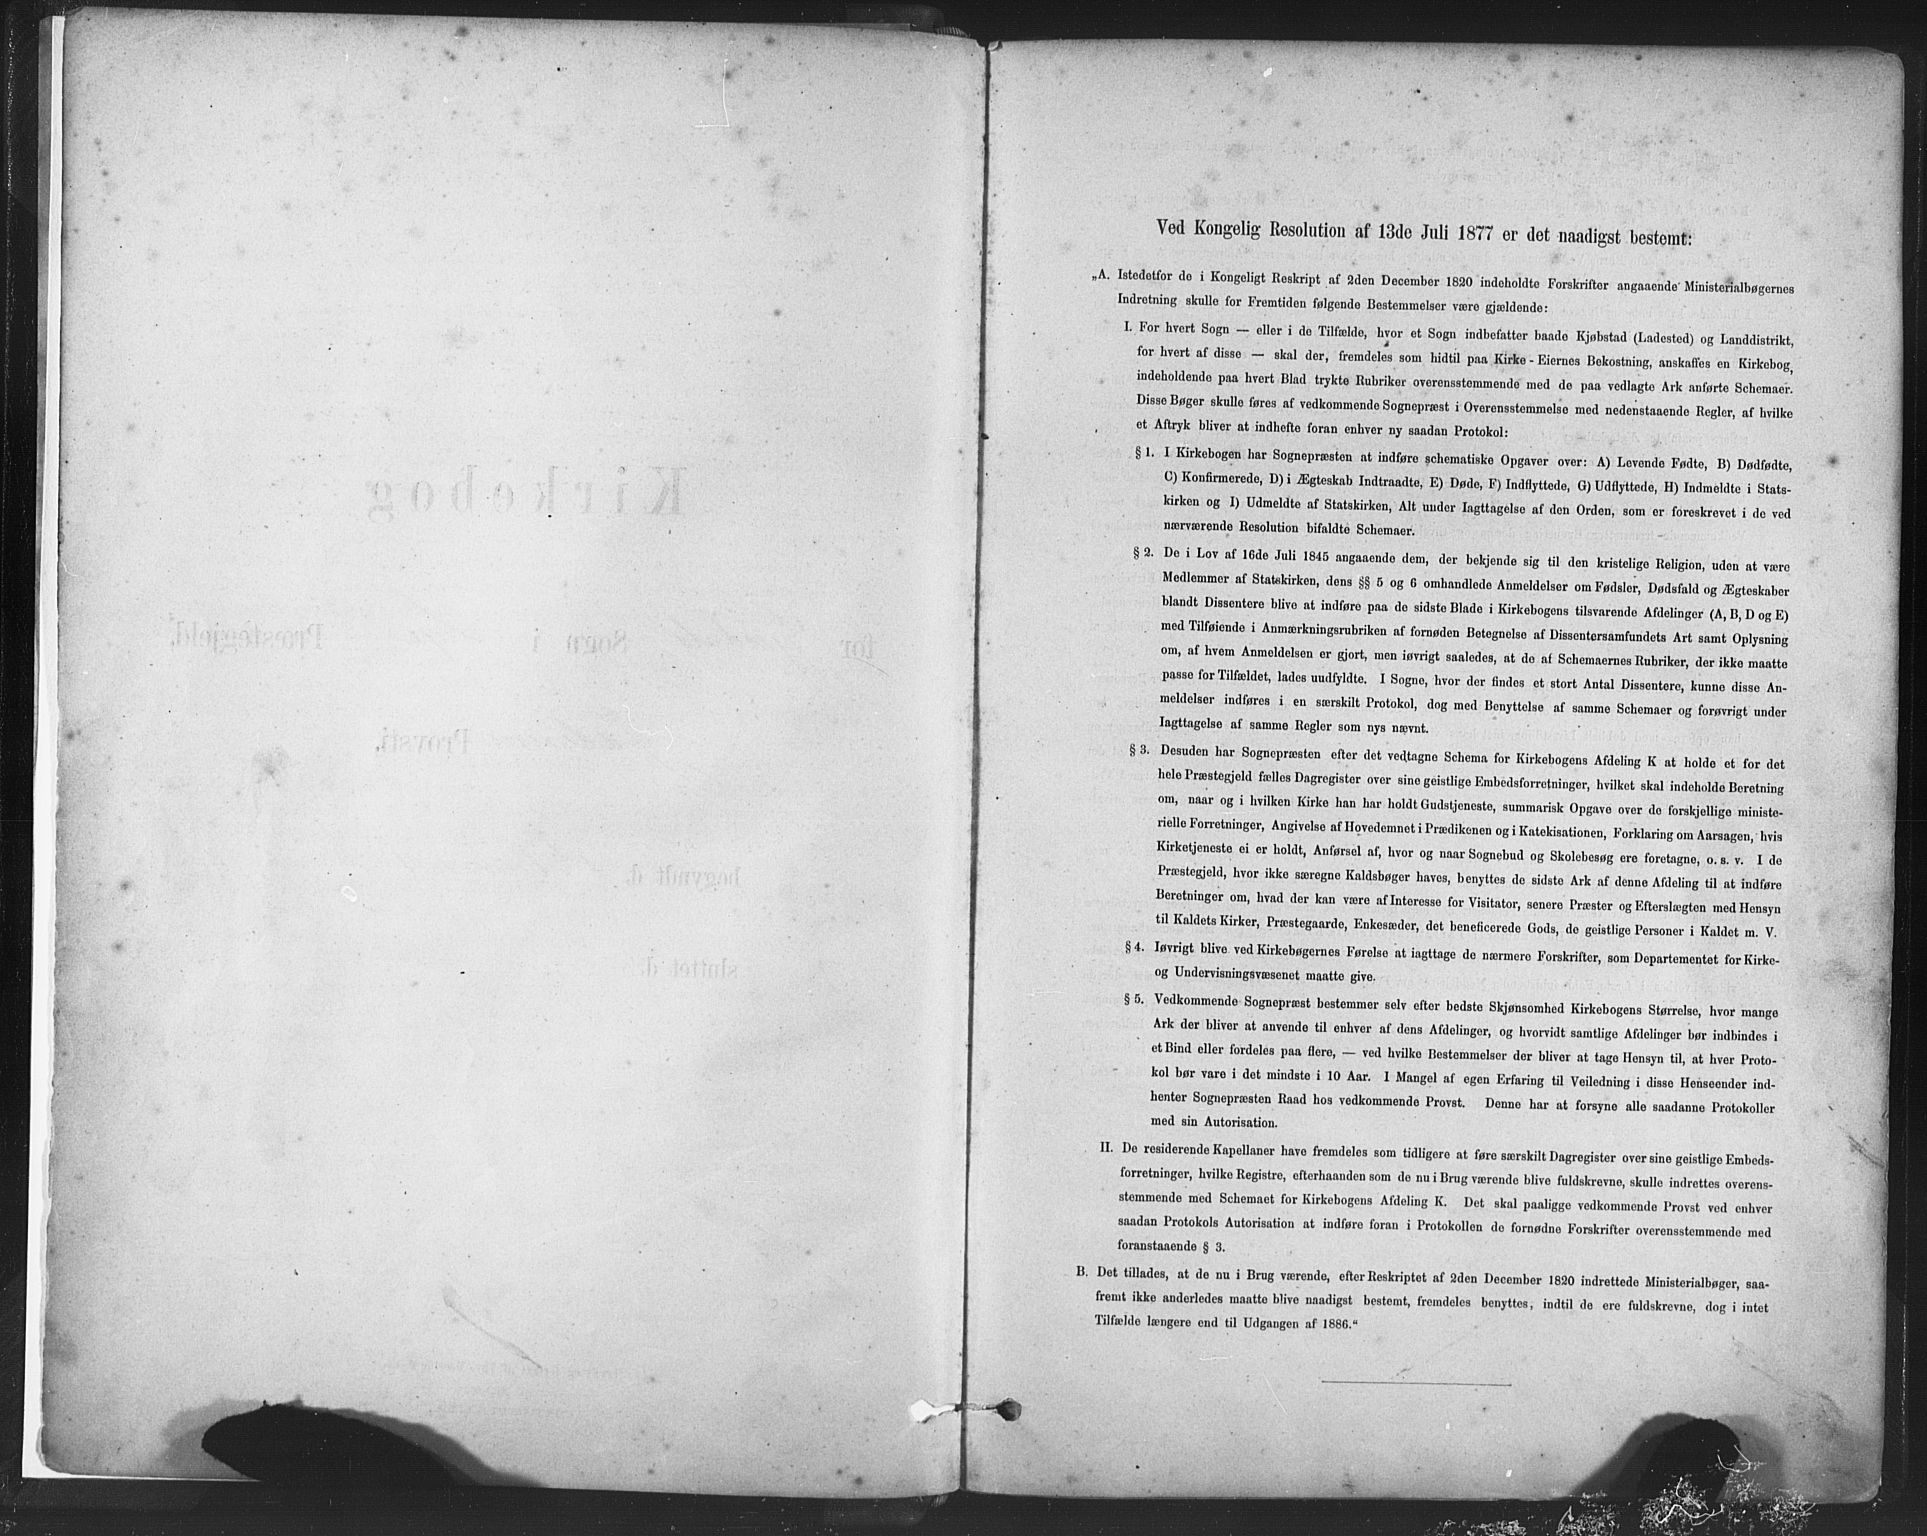 Kirkebog
for
Sogn i
Præstegjeld.
Provsti.
begyndt d.
sluttet d.
Ved Kongelig Resolution af 13de Juli 1877 er det naadigst bestemt:
„A. Istedetfor de i Kongeligt Reskript af 2den December 1820 indeholdte Forskrifter angaaende Ministerialbøgernes
Indretning skulle for Fremtiden følgende Bestemmelser være gjældende:
I. For hvert Sogn — eller i de Tilfælde, hvor et Sogn indbefatter baade Kjøbstad (Ladested) og Landdistrikt,
for hvert af disse — skal der, fremdeles som hidtil paa Kirke-Eiernes Bekostning, anskaffes en Kirkebog,
indeholdende paa hvert Blad trykte Rubriker overensstemmende med de paa vedlagte Ark anførte Schemaer.
Disse Bøger skulle føres af vedkommende Sognepræst i Overensstemmelse med nedenstaaende Regler, af hvilke
et Aftryk bliver at indhefte foran enhver ny saadan Protokol:
§ 1. I Kirkebogen har Sognepræsten at indføre schematiske Opgaver over: A) Levende Fødte, B) Dødfødte,
C) Konfirmerede, D) i Ægteskab Indtraadte, E) Døde, F) Indflyttede, G) Udflyttede, H) Indmeldte i Stats-
kirken og I) Udmeldte af Statskirken, Alt under Iagttagelse af den Orden, som er foreskrevet i de ved
nærværende Resolution bifaldte Schemaer.
§ 2. De i Lov af 16de Juli 1845 angaaende dem, der bekjende sig til den kristelige Religion, uden at være
Medlemmer af Statskirken, dens §§ 5 og 6 omhandlede Anmeldelser om Fødsler, Dødsfald og Ægteskaber
blandt Dissentere blive at indføre paa de sidste Blade i Kirkebogens tilsvarende Afdelinger (A, B, D og E)
med Tilføiende i Anmærkningsrubriken af fornøden Betegnelse af Dissentersamfundets Art samt Oplysning
om, af hvem Anmeldelsen er gjort, men iøvrigt saaledes, at de af Schemaernes Rubriker, der ikke maatte
passe for Tilfældet, lades uudfyldte. I Sogne, hvor der findes et stort Antal Dissentere, kunne disse An-
meldelser indføres i en særskilt Protokol, dog med Benyttelse af samme Schemaer og forøvrigt under
Iagttagelse af samme Regler som nys nævnt.
§ 3. Desuden har Sognepræsten efter det vedtagne Schema for Kirkebogens Afdeling K at holde et for det
hele Præstegjeld fælles Dagregister over sine geistlige Embedsforretninger, hvilket skal indeholde Beretning
om, naar og i hvilken Kirke han har holdt Gudstjeneste, summarisk Opgave over de forskjellige ministe-
rielle Forretninger, Angivelse af Hovedemnet i Prædikenen og i Katekisationen, Forklaring om Aarsagen, hvis
Kirketjeneste ei er holdt, Anførsel af, hvor og naar Sognebud og Skolebesøg ere foretagne, o. s. v. I de
Præstegjeld, hvor ikke særegne Kaldsbøger haves, benyttes de sidste Ark af denne Afdeling til at indføre
Beretninger om, hvad der kan være af Interesse for Visitator, senere Præster og Efterslægten med Hensyn
til Kaldets Kirker, Præstegaarde, Enkesæder, det beneficerede Gods, de geistlige Personer i Kaldet m. V.
§ 4. Iøvrigt blive ved Kirkebøgernes Førelse at iagttage de nærmere Forskrifter, som Departementet for Kirke-
og Undervisningsvæsenet maatte give.
§ 5. Vedkommende Sognepræst bestemmer selv efter bedste Skjønsomhed Kirkebogens Størrelse, hvor mange
Ark der bliver at anvende til enhver af dens Afdelinger, og hvorvidt samtlige Afdelinger bør indbindes i
et Bind eller fordeles paa flere, — ved hvilke Bestemmelser der bliver at tage Hensyn til, at hver Proto-
kol bør vare i det mindste i 10 Aar. I Mangel af egen Erfaring til Veiledning i disse Henseender ind-
henter Sognepræsten Raad hos vedkommende Provst. Denne har at forsyne alle saadanne Protokoller
med sin Autorisation.
II. De residerende Kapellaner have fremdeles som tidligere at føre særskilt Dagregister over sine geistlige Embeds-
forretninger, hvilke Registre, efterhaanden som de nu i Brug værende blive fuldskrevne, skulle indrettes overens-
stemmende med Schemaet for Kirkebogens Afdeling K. Det skal paaligge vedkommende Provst ved enhver
saadan Protokols Autorisation at indføre foran i Protokollen de fornødne Forskrifter overensstemmende med
foranstaaende § 3.
B. Det tillades, at de nu i Brug værende, efter Reskriptet af 2den December 1820 indrettede Ministerialbøger, saa-
fremt ikke anderledes maatte blive naadigst bestemt, fremdeles benyttes, indtil de ere fuldskrevne, dog i intet
Tilfælde længere end til Udgangen af 1886.“